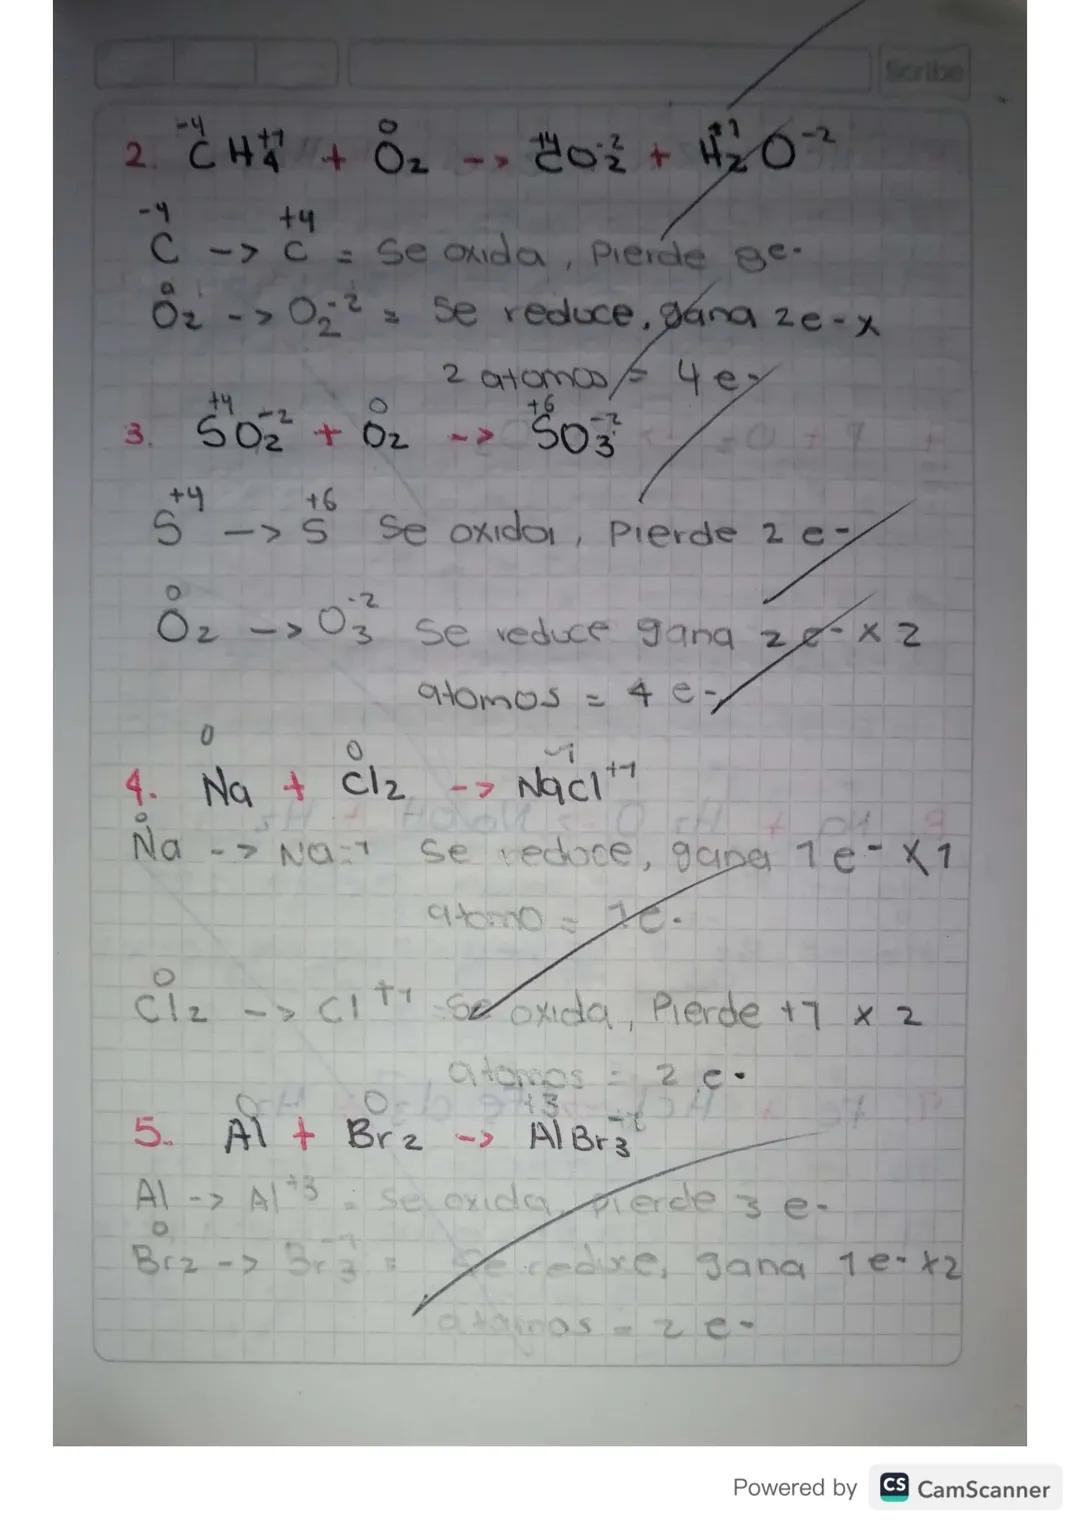 Scribe
2. -4 C H4 +1 + O2 0 --> +4 C O2 -2 + +1 H2 O -2
-4 C --> +4 C = Se oxida, Pierde 8e-
0 O2 --> O2 -2 = Se reduce, gana 2e- x
2 atomos = 4 e-
3. +4 S O2 -2 + 0 O2 --> +6 S O3 -2
+4 S --> +6 S Se oxida, Pierde 2 e-
0 O2 --> O3 -2 Se reduce gana 2 e- x 2
atomos = 4 e-
4. 0 Na + 0 Cl2 --> -1 NaCl +1
0 Na --> Na-1 Se reduce, gana 1e- x1
atomo = 1e-
0 Cl2 --> Cl +1 Se oxida, Pierde +1 x 2
atomos = 2 e-
5. 0 Al + 0 Br2 --> +3 Al Br3 -1
Al --> Al +3 = Se oxida, pierde 3 e-
0 Br2 --> Br3 -1 = Se reduce, gana 1e- x2
atomos = 2 e-
Powered by CS CamScanner